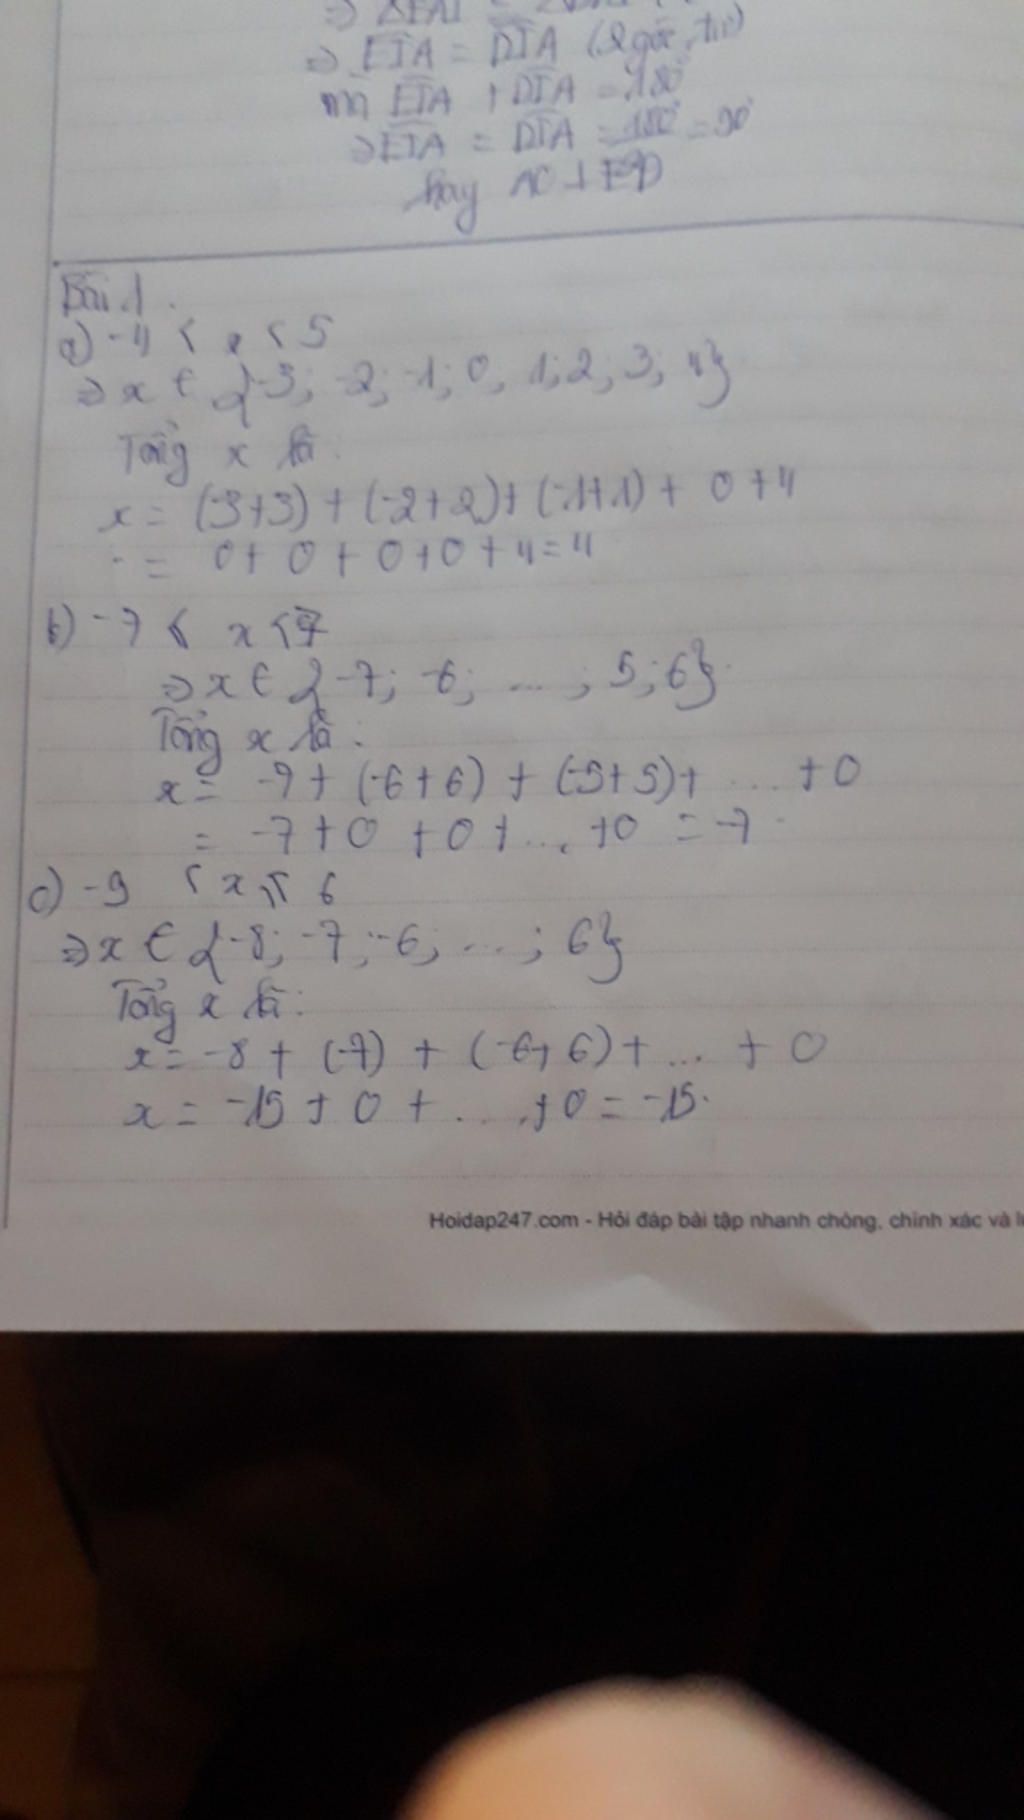 ⇒ EIA = DIA (2 góc
mà EIA + DIA = 180°
⇒ EIA = DIA = 180° = 90°
hay AC ⊥ ED
Bài 1.
a) -4 < x < 5
⇒ x ∈ {-3; -2; -1; 0; 1; 2; 3; 4}
Tổng x là:
x = (-3+3) + (-2+2) + (-1+1) + 0 + 4
= 0 + 0 + 0 + 0 + 4 = 4
b) -7 ≤ x < 7
⇒ x ∈ {-7; -6; ... ; 5; 6}.
Tổng x là:
x = -7 + (-6+6) + (-5+5) + ... + 0
= -7 + 0 + 0 + ... + 0 = -7.
c) -9 < x ≤ 6
⇒ x ∈ {-8; -7; -6; ... ; 6}
Tổng x là:
x = -8 + (-7) + (-6+6) + ... + 0
x = -15 + 0 + ... + 0 = -15.
Hoidap247.com - Hỏi đáp bài tập nhanh chóng, chính xác và